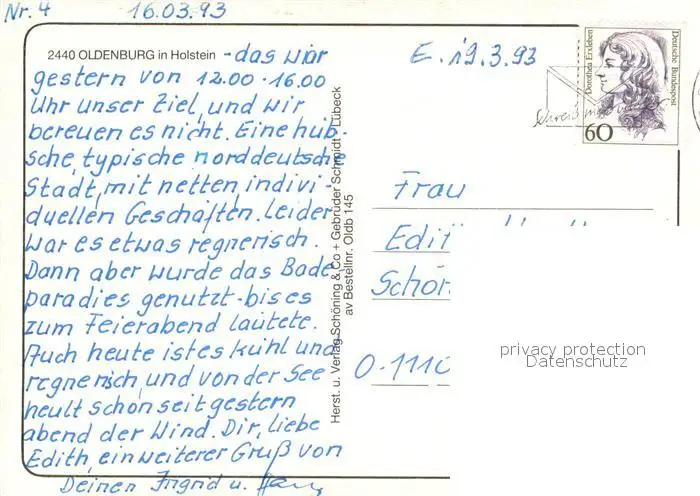 Nr. 4 16.03.93
2440 OLDENBURG in Holstein - das war
gestern von 12.00 - 16.00
Uhr unser Ziel, und wir
bereuen es nicht. Eine hüb-
sche, typische norddeutsche
Stadt, mit netten, indivi-
duellen Geschäften. Leider
war es etwas regnerisch.
Dann aber wurde das Bade-
paradies genutzt - bis es
zum Feierabend läutete.
Auch heute ist es kühl und
regnerisch, und von der See
heult schon seit gestern
abend der Wind. Dir, liebe
Edith, ein weiterer Gruß von
Deinen Ingrid u.
Herst. u. Verlag Schöning & Co + Gebrüder Schmidt, Lübeck
av Bestellnr. Oldb 145
E. 19.3.93
Dorothea Erxleben
Deutsche Bundespost
60
Frau
Edit
Schön
O-1110
privacy protection
Datenschutz